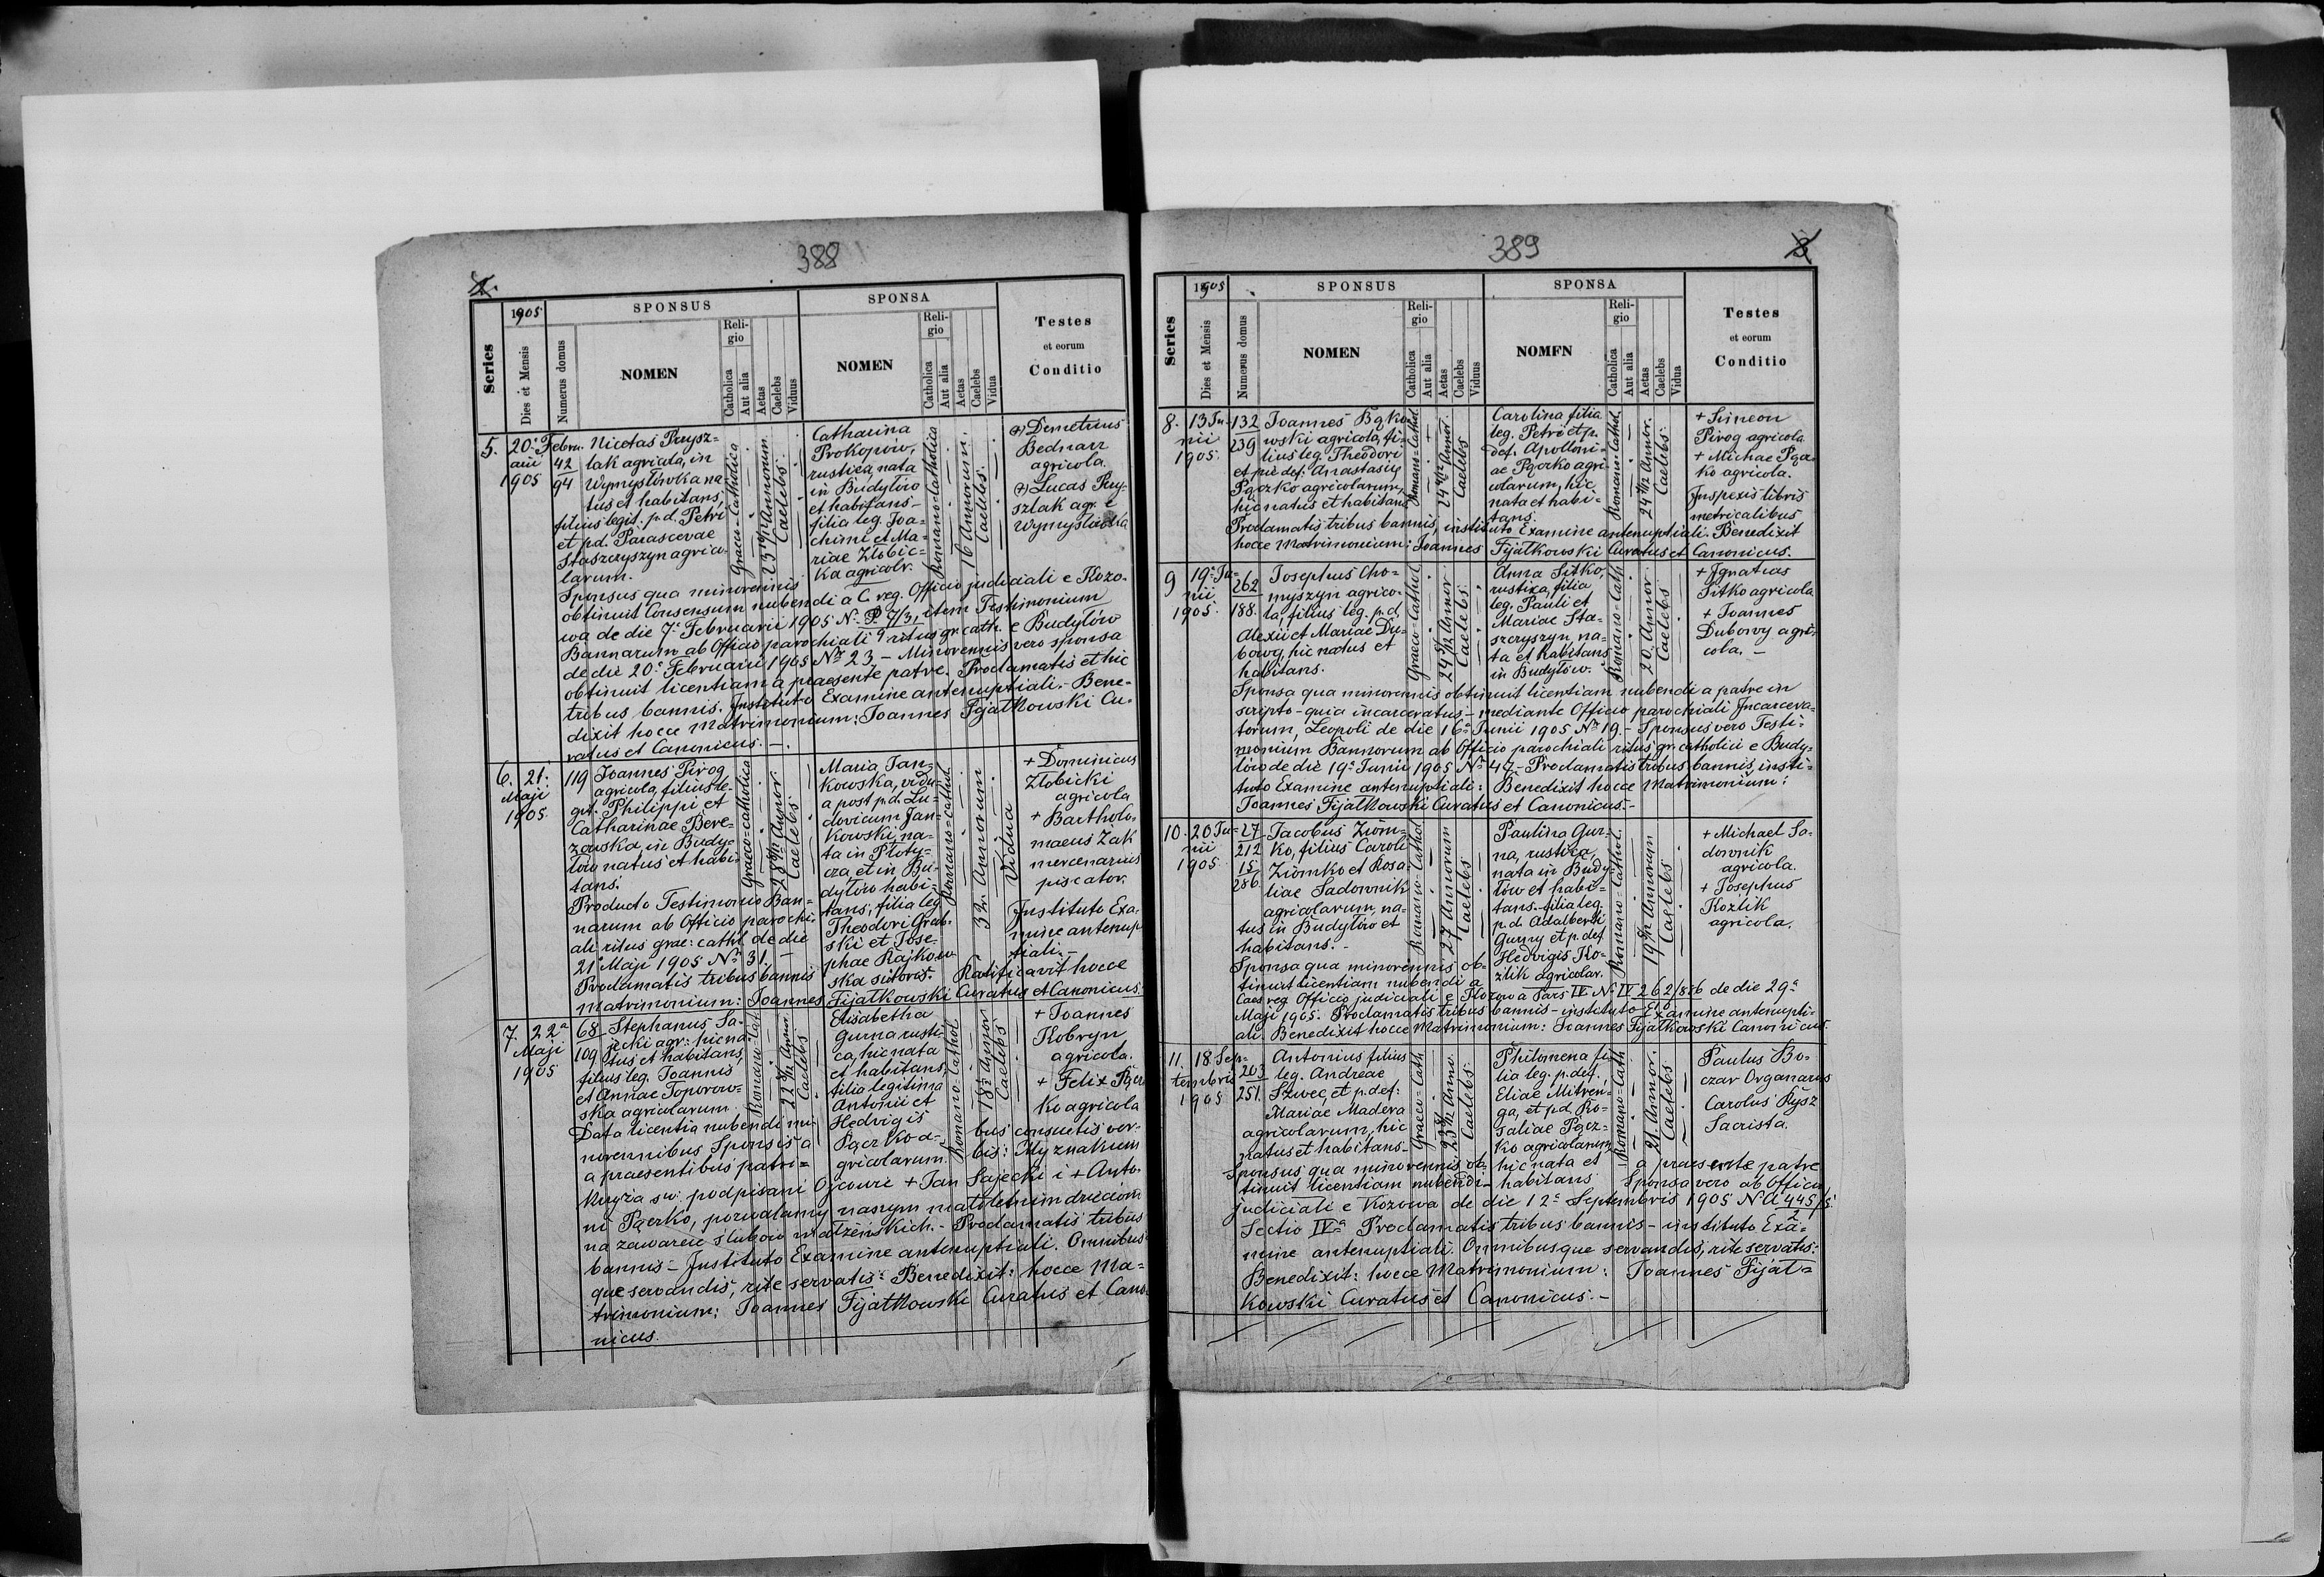 388
1905
SPONSUS
SPONSA
Series
Dies et Mensis
Numerus domus
NOMEN
Religio
Catholica
Aut alia
Aetas
Caelebs
Viduus
NOMEN
Religio
Catholica
Aut alia
Aetas
Caelebs
Vidua
Testes
et eorum
Conditio
5.
20ª Febru-
arii
1905
42
94
Nicetas Przysz=
lak agricola, in
Wymysłówka na=
tus et habitans,
filius legit. p.d. Petri
et p.d. Parascevae
Staszczyszyn agrico-
larum.
Graeco-Catholica
Annorum
Caelebs
Catharina
Prokopów,
rustica, nata
in Budyłów
et habitans-
filia leg. Joa=
chimi et Ma=
riae Złobic=
ka agricolr.
Romano-Catholica
16 Annorum.
Caelebs.
+) Demetrius
Bednarz
agricola.
+) Lucas Przy-
szlak agr. e
Wymysłówka
Sponsus qua minorennis
obtinuit Consensum nubendi a C. reg. Officio judiciali e Kozo-
wa de die 7ª Februarii 1905 Nº P 7/31, item Testimonium
Bannarum ab Officio parochiali ritus gr. cath. e Budyłów
de die 20ª Februarii 1905 Nº 23 - Minorennis vero sponsa
obtinuit licentiam a praesente patre. Proclamatis et hic
tribus bannis. Instituto Examine antenuptiali. - Bene-
dixit hocce Matrimonium: Joannes Fijałkowski Cu-
ratus et Canonicus. -.
6.
21.
Maji
1905.
119
Joannes Pirog
agricola, filius le-
git. Philippi et
Catharinae Bere=
zowska, in Budy=
łów natus et habi-
tans.
Graeco-catholica
Annor.
Caelebs
Maria Jan=
kowska, vidu-
a post p.d. Lu=
dovicum Jan=
kowski na-
ta in Płoty=
cza, et in Bu-
dyłów habi-
tans, filia leg.
Theodori Grab-
ski et Jose-
phae Rajkow
ska sutores.
Romano-Cathol.
32. Annorum
Vidua
+ Dominicus
Złobicki
agricola
+ Bartholo-
maeus Żak
mercenarius
piscator.
Instituto Exa-
mine antenup
tiali. -
Producto Testimonio Ban=
narum ab Officio parochi-
ali ritus grae: cathl. de die
21ª Maji 1905 Nº 31. -
Proclamatis tribus bannis
Ratificavit hocce
matrimonium: Joannes Fijałkowski Curatus et Canonicus.
7.
22ª
Maji
1905
68
109
Stephanus Sa-
jecki agr: hic na-
tus et habitans,
filius leg. Joannis
et Annae Toporow=
ska agricolarum.
Romano-Cath.
Annor.
Caelebs
Elisabetha
Gurna rusti-
ca, hic nata
et habitans,
filia legitima
Antonii et
Hedvigis
Pączko a-
gricolarum.
Romano-Cathol.
Annor
Caelebs
+ Joannes
Kobryn
agricola.
+ Felix Pącz
ko agricola
Data licentia nubendi mi-
norennibus Sponsis a
a praesentibus patri=
bus consuetis ver-
bis: My znakiem
krzyża sw. podpisani Ojcowie + Jan Sajecki i + Anto-
ni Pączko, pozwalamy naszym małoletnim dzieciom
na zawarcie slubow małżeńskich. - Proclamatis tribus
bannis - Instituto Examine antenuptiali. Omnibus
que servandis, rite servatis: Benedixit: hocce Ma=
trimonium: Joannes Fijałkowski Curatus et Cano-
nicus.
389
1905
SPONSUS
SPONSA
Series
Dies et Mensis
Numerus domus
NOMEN
Religio
Catholica
Aut alia
Aetas
Caelebs
Viduus
NOMFN
Religio
Catholica
Aut alia
Aetas
Caelebs
Vidua
Testes
et eorum
Conditio
8.
13 Ju-
nii
1905.
132
239
Joannes Bąko-
wski agricola, fi-
lius leg. Theodori
et pie def. Anastasiy
Pączko agricolarum,
hic natus et habitans
Romano-Cathol.
Annor.
Caelebs
Carolina filia
leg. Petri et p.
def. Apolloni-
ae Pączko agri-
colarum, hic
nata et habi-
tans.
Romano-Cathol.
Annor.
Caelebs.
+ Simeon
Pirog agricola
+ Michae Pącz-
ko agricola.
Inspexis libris
metricalibus
Proclamatis tribus bannis, instituto Examine antenuptiali. Benedixit
hocce Matrimonium: Joannes Fijałkowski Curatus et Canonicus.
9
19ª Ju-
nii
1905.
262
188.
Josephus Cho=
myszyn agrico-
la, filius leg. p.d.
Alexii et Mariae Du-
bowy, hic natus et
habitans.
Graeco-Cathol.
Annor
Caelebs
Anna Sitko,
rustica, filia
leg. Pauli et
Mariae Sta-
szczyszyn, na-
ta et habitans
in Budyłów.
Romano-Cath
20. Annor.
Caelebs
+ Ignatius
Sitko agricola
+ Joannes
Dubowy agri-
cola. -
Sponsa qua minorennis obtinuit licentiam nubendi a patre in
scripto - quia incarceratus - mediante Officio parochiali Incarcera=
torum, Leopoli de die 16ª Junii 1905 Nº 19. - Sponsus vero Testi=
monium Bannorum ab Officio parochiali ritus gr. catholici e Budy-
łów de die 19ª Junii 1905 Nº 47. - Proclamatis tribus bannis, insti=
tuto Examine antenuptiali: Benedixit hocce Matrimonium:
Joannes Fijałkowski Curatus et Canonicus. -
10.
20 Ju-
nii
1905.
27
212
15
286
Jacobus Ziom-
ko, filius Caroli
Ziomko et Rosa-
liae Sadownik
agricolarum, na-
tus in Budyłów et
habitans. -
Romano-Cathol
27 Annorum
Caelebs
Paulina Gur-
na, rustica,
nata in Budy-
łów et habi=
tans. - filia leg.
p.d. Adalberti
Gurny et p. def
Hedvigis Ko-
zlik agricolar.
Romano-Cathol.
Annorum
Caelebs
+ Michael Sa-
downik
agricola.
+ Josephus
Kozlik
agricola.
Sponsa qua minorennis ob-
tinuit licentiam nubendi a
Caes reg. Officio judiciali e Kozowa Pars IV Nº IV 262/86 de die 29ª
Maji 1905. Proclamatis tribus bannis - instituto Examine antenupti-
ali. Benedixit hocce Matrimonium: Joannes Fijałkowski Canonicus.
11.
18. Sep-
tembris
1905
203
251.
Antonius filius
leg. Andreae
Szwec, et p. def:
Mariae Madera
agricolarum, hic
natus et habitans-
Graeco-Cath
Anno.
Caelebs.
Philomena fi-
lia leg. p. def.
Eliae Mitren-
ga, et p.d. Ro-
saliae Pącz=
ko agricolarum,
hic nata et
habitans
Romano-Cath.
21. Annor.
Caelebs
Paulus Bo-
czar Organarius
Carolus Rysz
Sacrista.
Sponsus qua minorennis ob-
a praesente patre
tinuit licentiam nubendi -
Sponsa vero ab Officio
judiciali e Kozowa de die 12ª Septembris 1905 Nº A 445/5
2
Sectio IVª Proclamatis tribus bannis - instituto Exa=
mine antenuptiali. Omnibusque servandis, rite servatis:
Benedixit: hocce Matrimonium: Joannes Fijał=
kowski Curatus et Canonicus. -